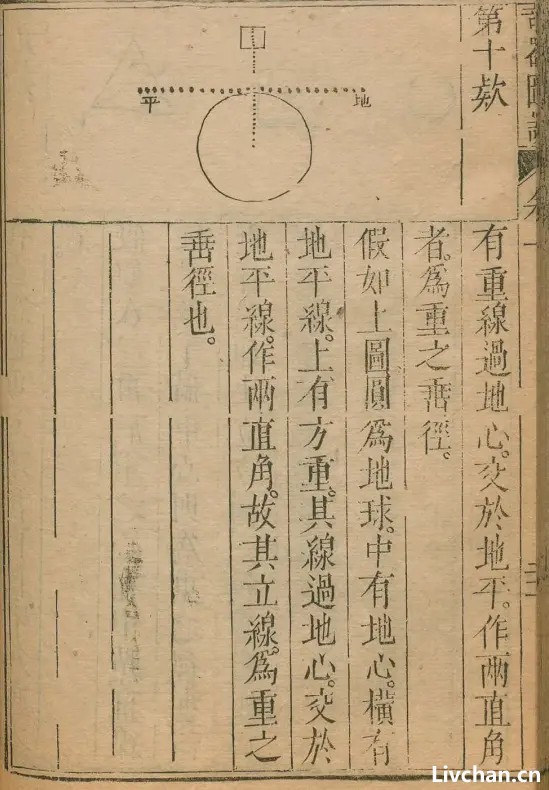 第十欵
地平
有重線過地心。交於地平。作兩直角
者。爲重之垂徑。
假如上圖圓爲地球。中有地心。橫有
地平線。上有方重。其線過地心。交於
地平線。作兩直角。故其立線。爲重之
垂徑也。
Livchan.cn